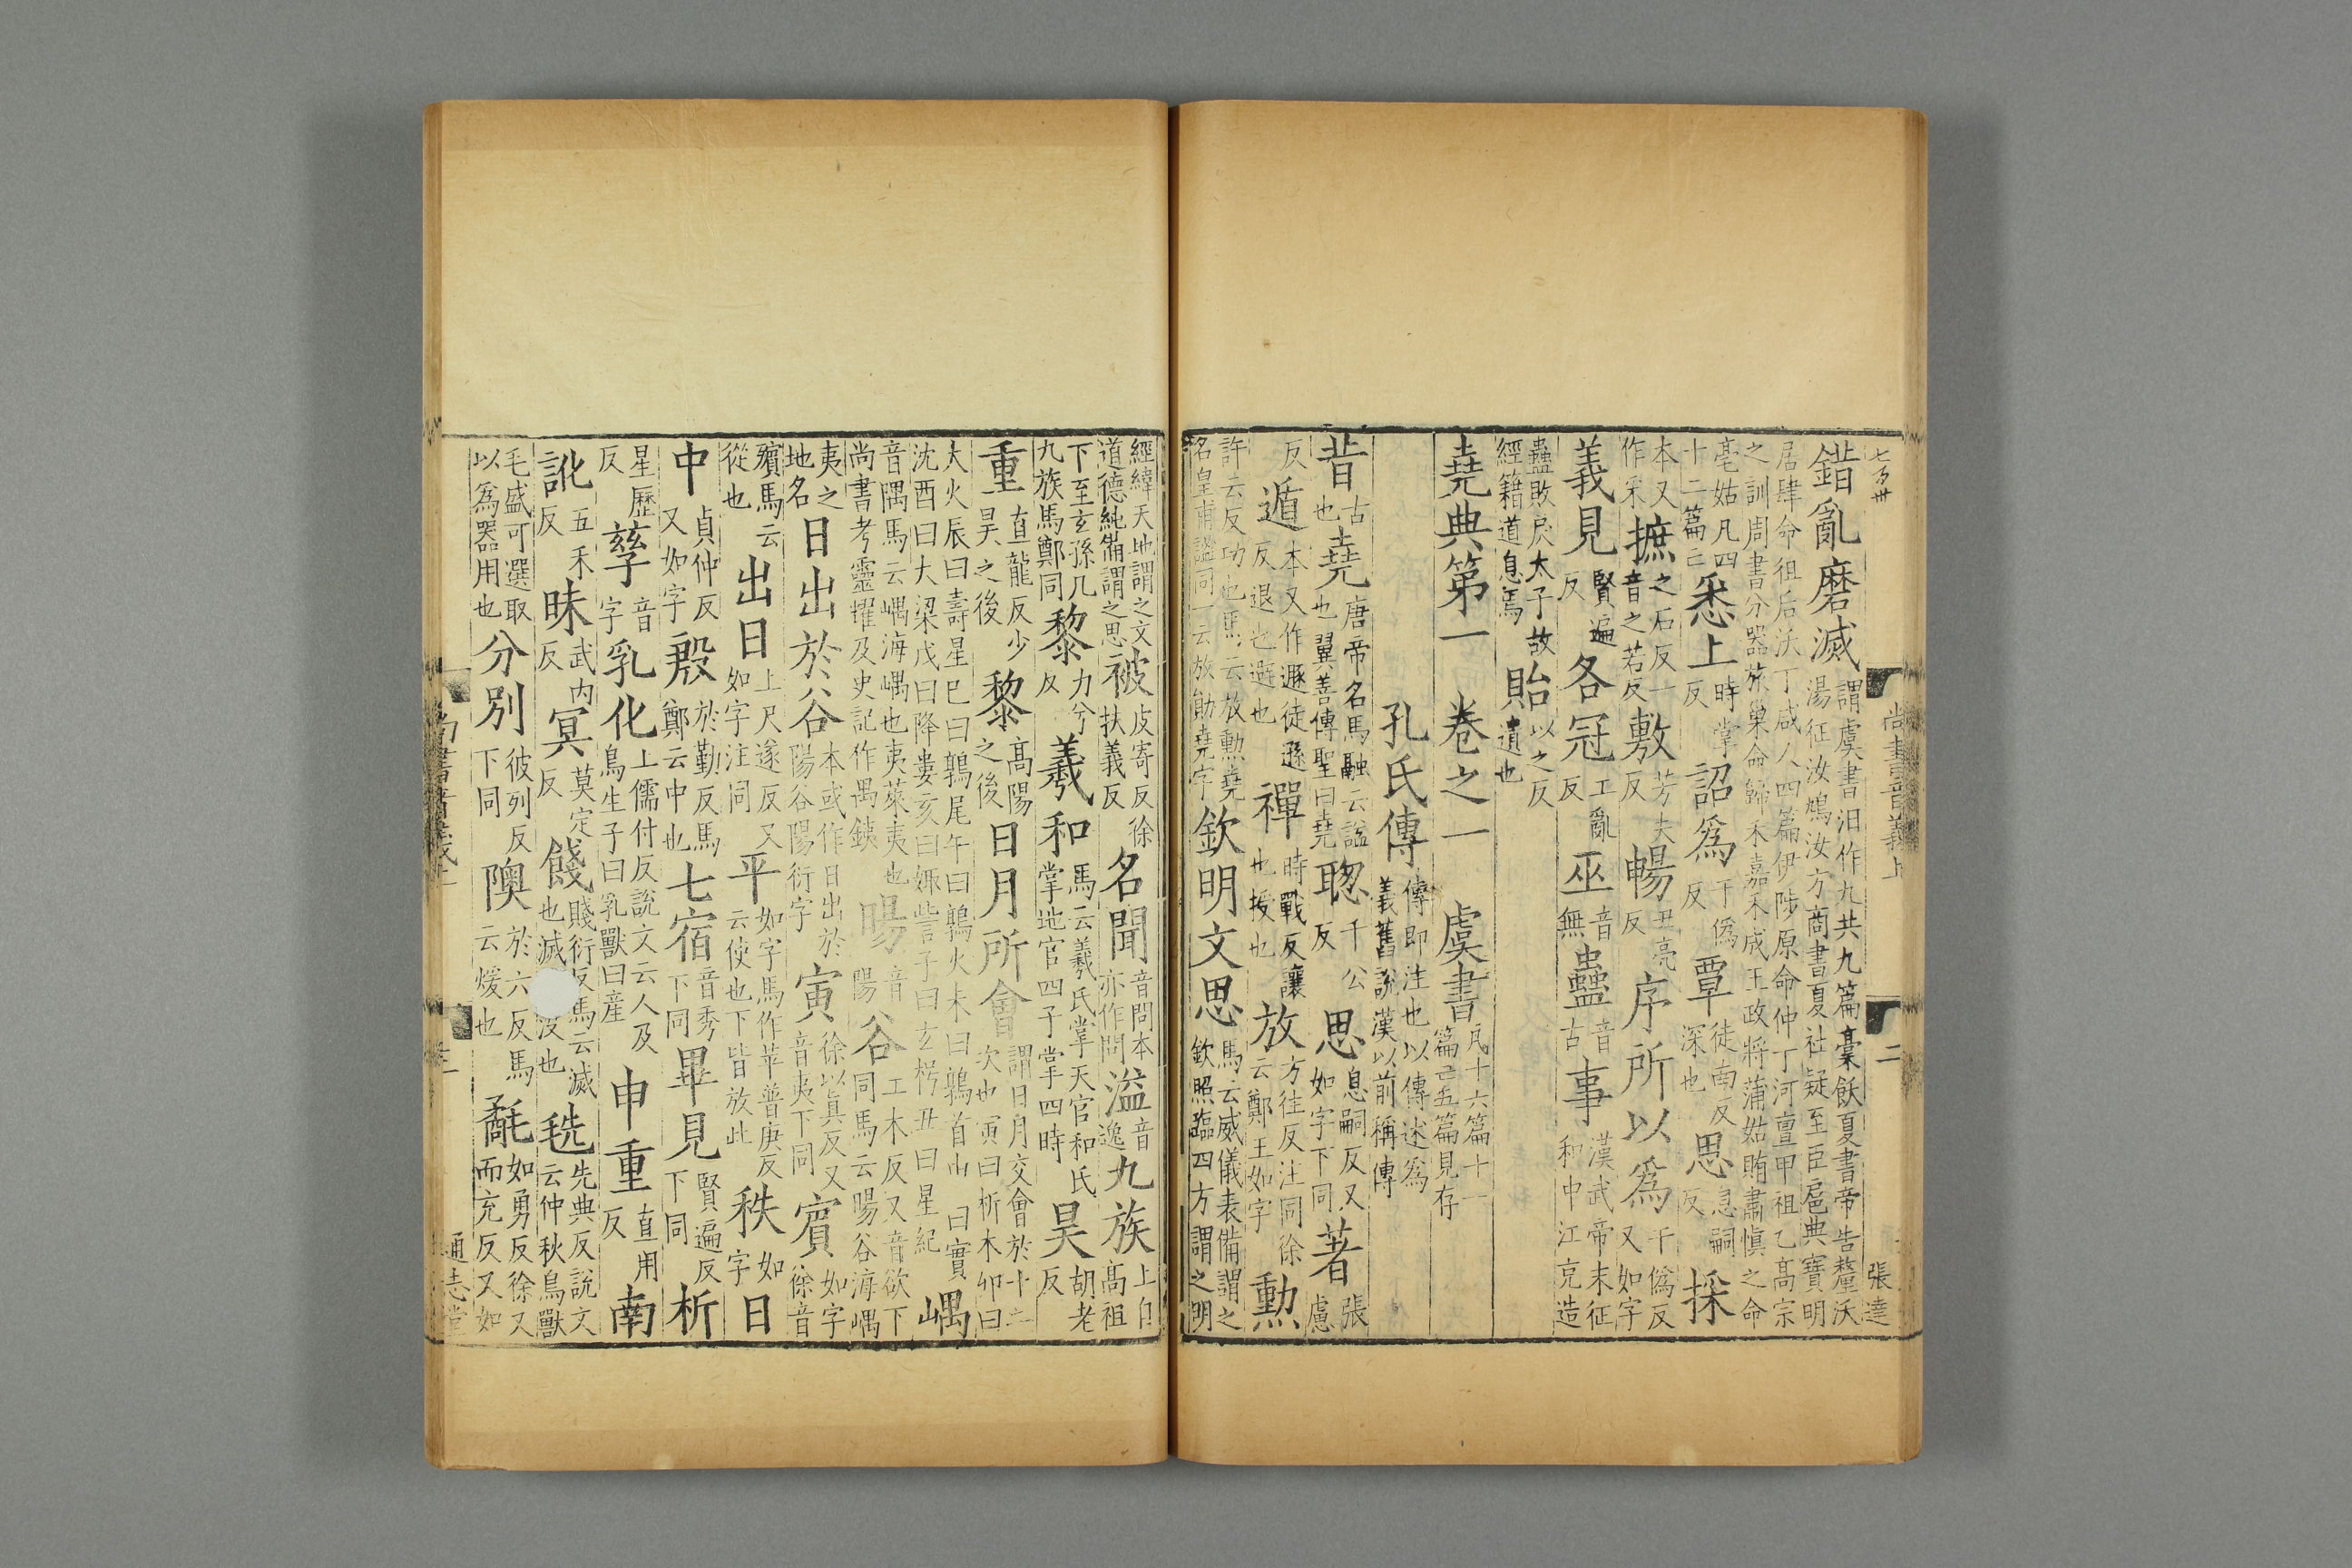 七百卅
尚書音義上
二
張達
錯亂磨滅謂虞書汨作九共九篇稾飫夏書帝告釐沃湯征汝鳩汝方商書夏社疑至臣扈典寶明
居肆命徂后沃丁咸乂四篇伊陟原命仲丁河亶甲祖乙高宗之訓周書分器旅巢命歸禾嘉禾成王政將蒲姑賄肅慎之命
亳姑凡四十二篇亡悉上時掌反詔爲下僞反覃徒南反深也思息嗣反採
本又作采摭之石反一音之若反敷芳夫反暢丑亮反序所以爲于僞反又如字
義見賢遍反各冠工亂反巫音無蠱音古事漢武帝末征和中江充造
蠱敗戾太子故經籍道息焉貽以之反遺也
堯典第一　卷之一　虞書凡十六篇十一篇亡五篇見存
孔氏傳傳即注也以傳述爲義舊說漢以前稱傳
昔古也堯唐帝名馬融云謚也翼善傳聖曰堯聰千公反思息嗣反又如字下同著張慮
反遁本又作遯徒遜反退也避也禪時戰反讓也授也放方往反注同徐云鄭王如字勳
許云反功也馬云放勳堯名皇甫謐同一云放勛堯字欽明文思馬云威儀表備謂之欽照臨四方謂之明
經緯天地謂之文道德純備謂之思被皮寄反徐扶義反名聞音問本亦作問溢音逸九族上自高祖
下至玄孫凡九族馬鄭同黎力兮反羲和馬云羲氏掌天官和氏掌地官四子掌四時昊胡老反
重直龍反少昊之後黎高陽之後日月所會謂日月交會於十二次也寅曰析木卯曰
大火辰曰壽星巳曰鶉尾午曰鶉火未曰鶉首申曰實沈酉曰大梁戌曰降婁亥曰娵訾子曰玄枵丑曰星紀嵎
音隅馬云嵎海嵎也夷萊夷也尚書考靈耀及史記作禺銕暘音陽谷工木反又音欲下同馬云暘谷海嵎
夷之地名日出於谷本或作日出於陽谷陽衍字寅徐以眞反又音夷下同賓如字徐音
殯馬云從也出日上尺遂反又如字注同平如字馬作苹普庚反云使也下皆放此秩如字日
中貞仲反又如字殷於勤反馬鄭云中也七宿音秀下同畢見賢遍反下同析
星歷反孳音字乳化上儒付反說文云人及鳥生子曰乳獸曰産申重直用反南
訛五禾反昧武内反冥莫定反餞賤衍反馬云滅也滅沒也毨先典反說文云仲秋鳥獸
毛盛可選取以爲器用也分別彼列反下同隩於六反馬云煖也氄如勇反徐又而充反又如
尚書音義上
通志堂